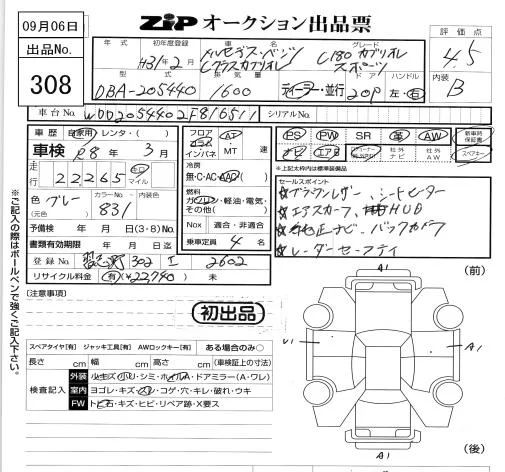 09月06日
出品No.
308
ZiP オークション出品票
評価点
4.5
内装
B
年式 初年度登録 車名 グレード
H31年2月 メルセデス・ベンツ Cクラスカブリオレ C180 カブリオレ スポーツ
型式 排気量 ドア ハンドル
DBA-205440 1600 ディーラー・並行 2DP 左・右
車台No. WDD2054402F816511 シリアルNo.
車歴 自家用・レンタ・( )
車検 R8年 3月
走行 22265 キロ マイル
色 グレー カラーNo. 831 内装色
(元色)
予備検 年 月 日(3・8)No.
書類有効期限 年 月 日迄
登録No. 習志野 302 2602
リサイクル料金 有(¥22,740) 未
フロア コラム インパネ AT MT 速
冷房 無・C・AC・AAC
燃料 ガソリン・軽油・電気・その他( )
Nox 適合・非適合
乗車定員 4 名
PS PW SR 革 AW
ナビ エアB 社外ナビ 社外AW
新車時保証書
スペアキー
※上記太枠内は標準装備品
セールスポイント
☆ブラウンレザー、シートヒーター
☆エアスカーフ、HUD
☆純正ナビ バックカメラ
☆レーダーセーフティ
※ご記入の際はボールペンで強くご記入下さい。
[注意事項]
初出品
スペアタイヤ[有] ジャッキ工具[有] AWロックキー[有] ある場合のみ○
長さ cm 幅 cm 高さ cm (車検証上の寸法)
検査記入
外装 少キズ・小U・シミ・ホイルA・ドアミラー(A・ワレ)
室内 ヨゴレ・キズ・スレ・コゲ・穴・キレ・破れ・ウキ
FW トビ石・キズ・ヒビ・リペア跡・X要ス
(前)
A1
U1
A1
A1
(後)